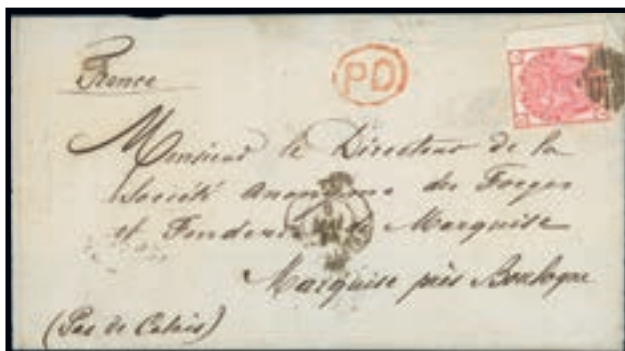 France
PD
Monsieur le Directeur de la
Société Anonyme des Forges
et Fonderies de Marquise
Marquise près Boulogne
(Pas de Calais)